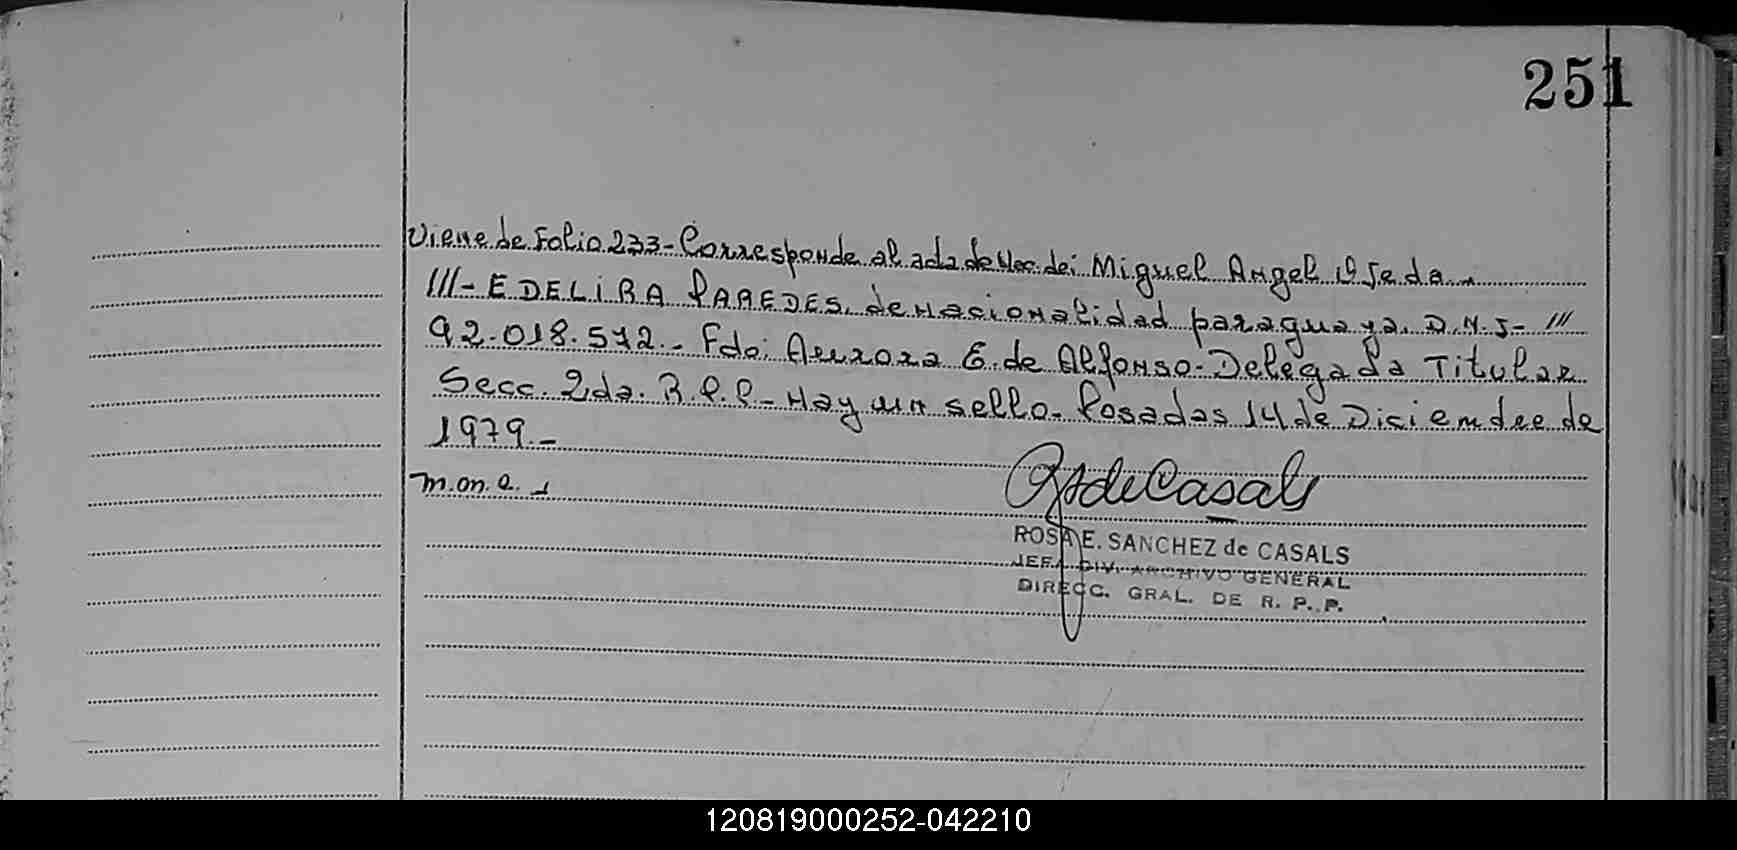 251
Viene de Folio 233- Corresponde al acta de Nac. de: Miguel Angel Ojeda.-
III- EDELIRA PAREDES, de nacionalidad paraguaya. D.N.I- III
92.018.572.- Fdo: Aurora E. de Alfonso- Delegada Titular
Secc. 2da. R.P.P- Hay un sello- Posadas 14 de Diciembre de
1979.-
m.on.a.-
RSdeCasals
ROSA E. SANCHEZ de CASALS
JEFA DIV. ARCHIVO GENERAL
DIRECC. GRAL. DE R. P. P.
120819000252-042210